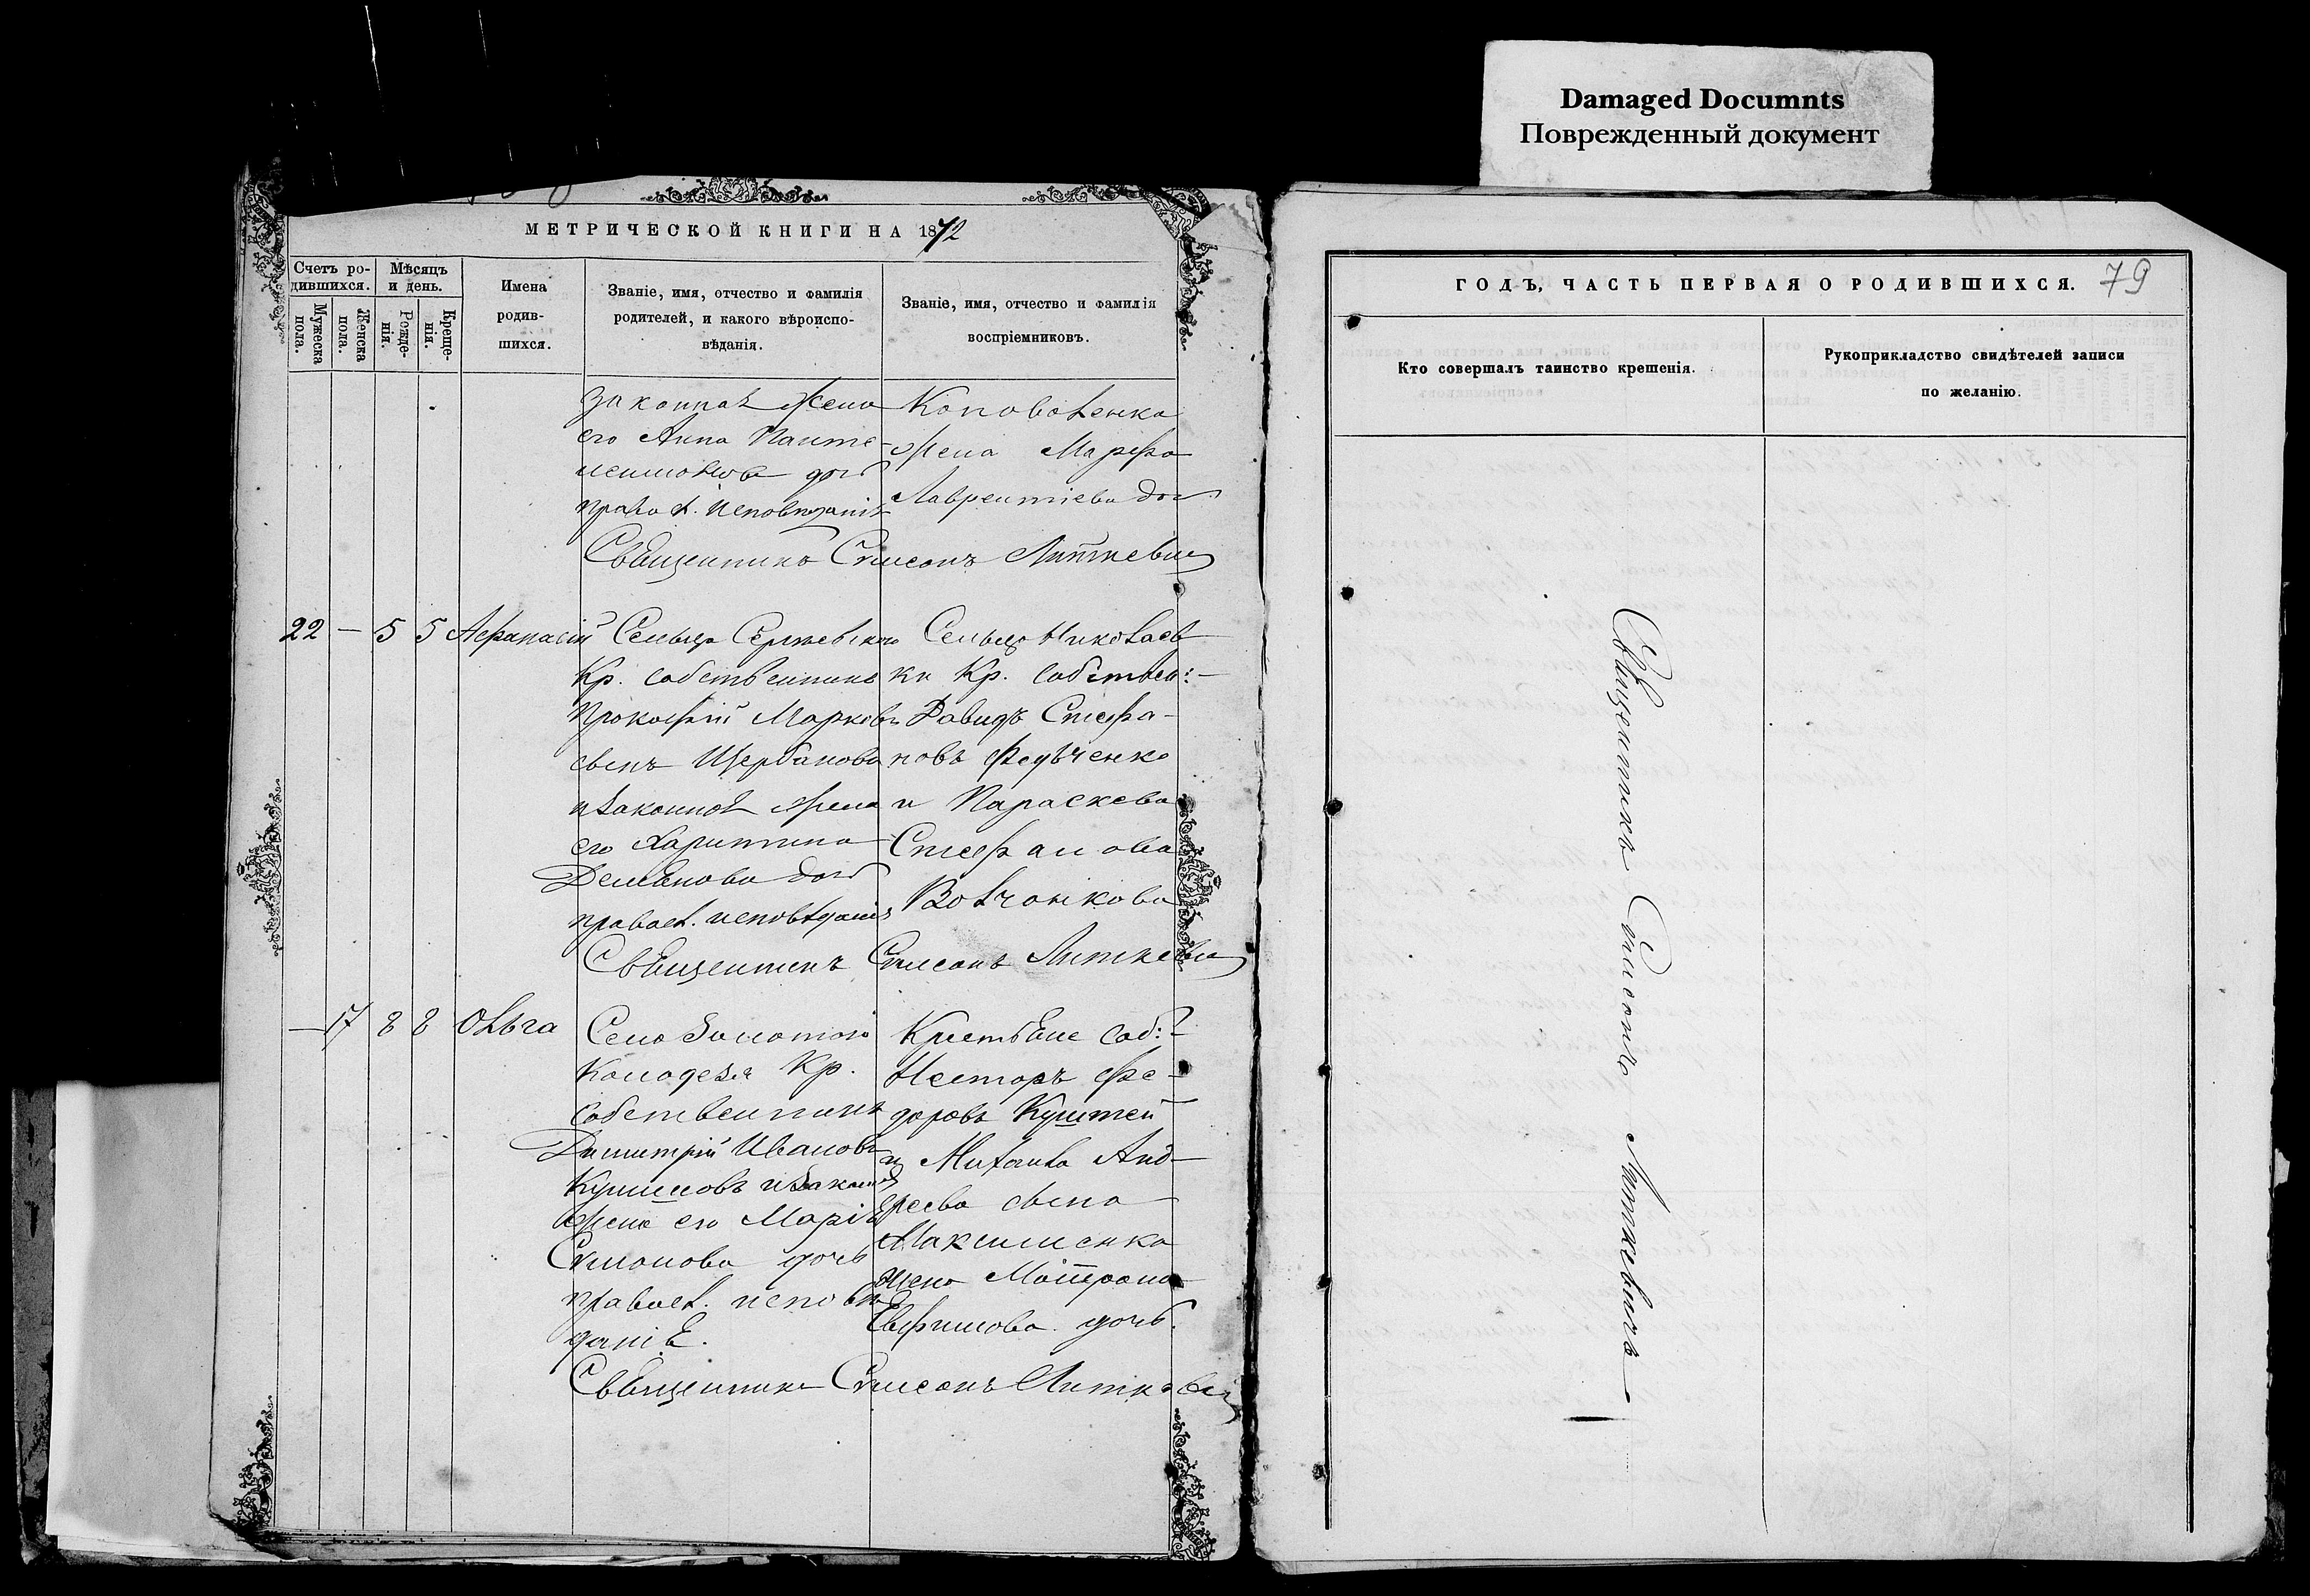 Damaged Documnts
Поврежденный документ
МЕТРИЧЕСКОЙ КНИГИ НА 1872
Счетъ ро-
дившихся.
Мужеска
пола.
Женска
пола.
Мѣсяцъ
и день.
Рожде-
нія.
Креще-
нія.
Имена
родив-
шихся.
Званіе, имя, отчество и фамилія
родителей, и какого вѣроиспо-
вѣданія.
Званіе, имя, отчество и фамилія
воспріемниковъ.
законная жена
его Анна Панте-
леимонова доч
Правосл. исповѣданія
Коноваленка
жена Марфа
Лаврентіева доч.
Священникъ Симеонъ Литкевич
22 — 5 5 Афанасій
Сельца Сергіевскаго
Кр. собственникъ
Прокофій Марковъ
сынъ Щербаковъ
и законная жена
его Харитина
Демьянова доч
правосл. исповѣданія
Сельца Николаев
ки Кр. собствен:
Давидъ Стефа-
новъ Федьченко
и Параскева
Стефанова
Волчанкова
Священникъ Симеонъ Литкевич
— 17 8 8 Ольга
Села Золотого
Колодезя Кр.
собственникъ
Димитрій Ивановъ
и законная
жена его Марія
Симонова дочь
правосл. исповѣ
данія.
Крестьяне соб:
Несторъ Фе-
доровъ
и Михаила Анд-
реева сына
Максименка
жена Матрона
Евфимова дочь.
Священникъ Симеонъ Литкевич
ГОДЪ, ЧАСТЬ ПЕРВАЯ О РОДИВШИХСЯ.
79
Кто совершалъ таинство крещенія.
Рукоприкладство свидѣтелей записи
по желанію.
Священникъ Симеонъ Литкевичъ